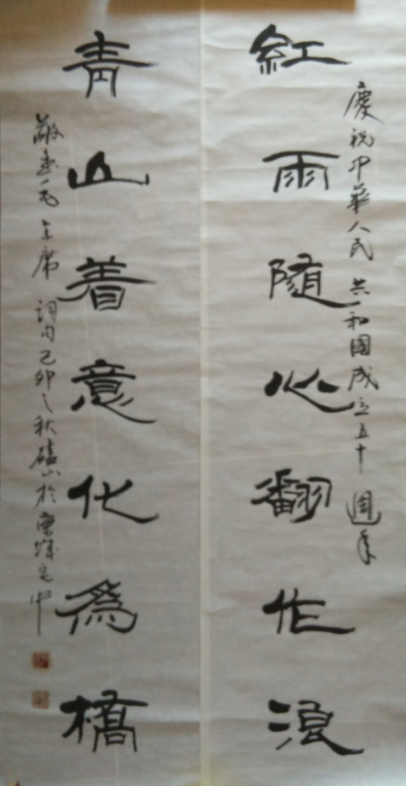 慶祝中華人民共和國成立五十週年
紅雨隨心翻作浪
青山着意化為橋
敬書毛主席詞句己卯之秋於